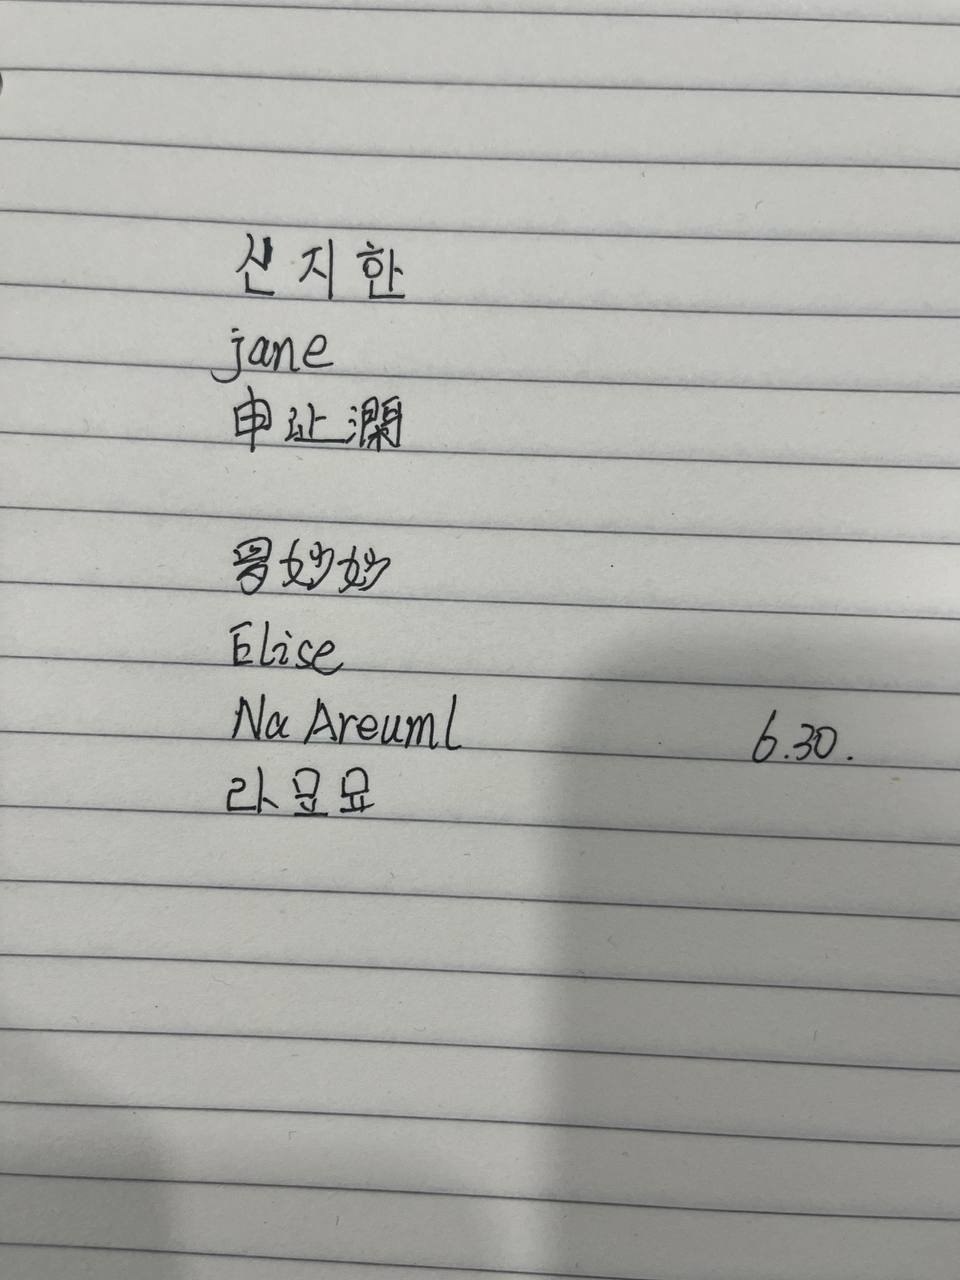 신지한
jane
申址瀾
妙妙
Elise
Na Areuml
6.30.
라묘묘